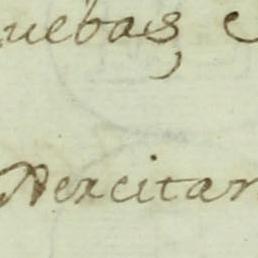 uebas, e
Nexcitar